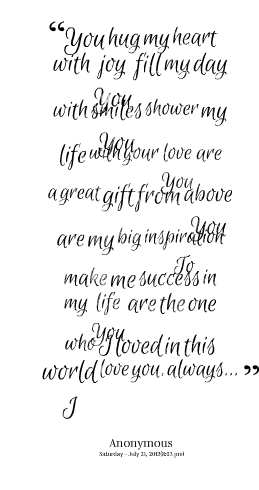 “You hug my heart
with joy fill my day
You
with smiles shower my
You
life with your love are
You
a great gift from above
You
are my big inspiration
To
make me success in
my life are the one
You
who I loved in this
world love you, always... ”
I
Anonymous
Saturday - July 21, 2012